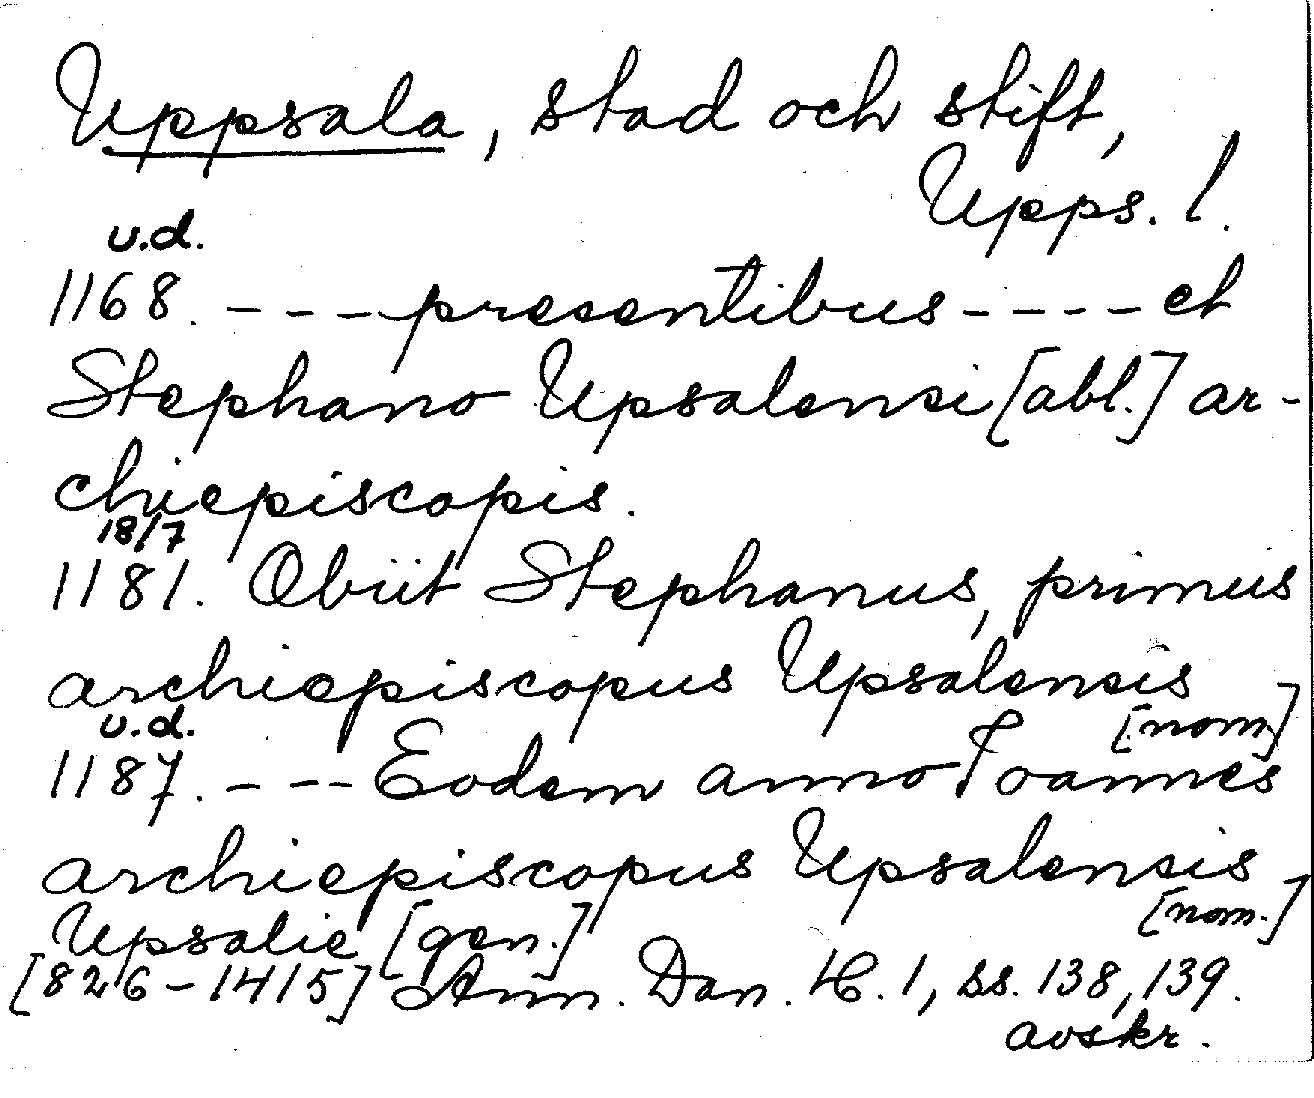 Uppsala, stad och stift,
Upps. l.
u.d.
1168. - - - presentibus - - - - et
Stephano Upsalensi [abl.] ar-
chiepiscopis.
18/7
1181. Obiit Stephanus, primus
archiepiscopus Upsalensis
[nom]
u.d.
1187. - - - Eodem anno Ioannes
archiepiscopus Upsalensis
[nom.]
Upsalie [gen.]
[826-1415] Ann. Dan. H. 1, ss. 138, 139.
avskr.